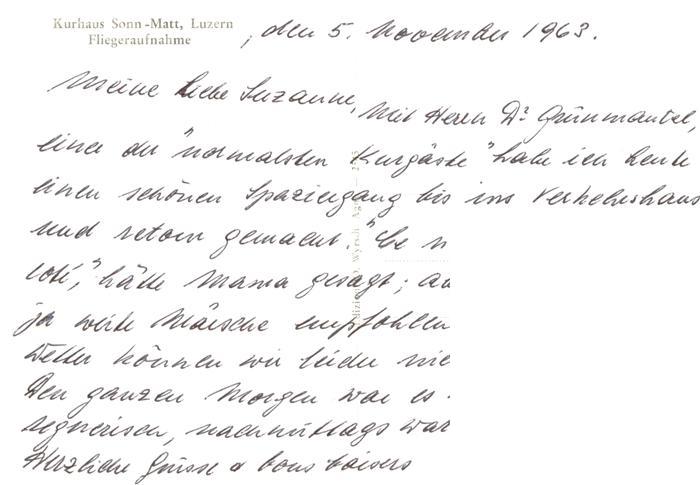 Kurhaus Sonn-Matt, Luzern
Fliegeraufnahme
, den 5. November 1963.
Meine liebe Suzanne,
Mit Herrn Dr Grünmantel,
einer der "normalsten Kurgäste" habe ich heute
einen schönen Spaziergang bis ins Verkehrshaus
und retour gemacht. "Ce n
coté," hätte Mama gesagt; au
ja weite Märsche empfohlen
Wetter können wir leider nic
Den ganzen Morgen war es
regnerisch, nachmittags war
Herzliche Grüsse & bons baisers